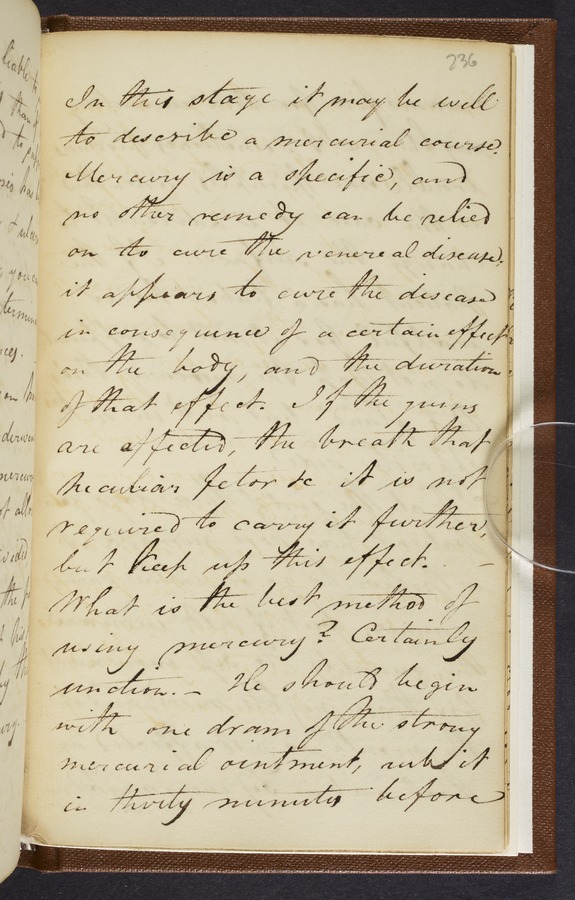 236
In this stage it may be well
to describe a mercurial course.
Mercury is a specific, and
no other remedy can be relied
on to cure the venereal disease;
it appears to cure the disease
in consequence of a certain effect
on the body, and the duration
of that effect. If the gums
are affected, the breath that
peculiar fetor &c it is not
required to carry it further,
but keep up this effect. –
What is the best method of
using mercury? Certainly
unction. – He should begin
with one dram of the strong
mercurial ointment, rub it
in thirty minutes before